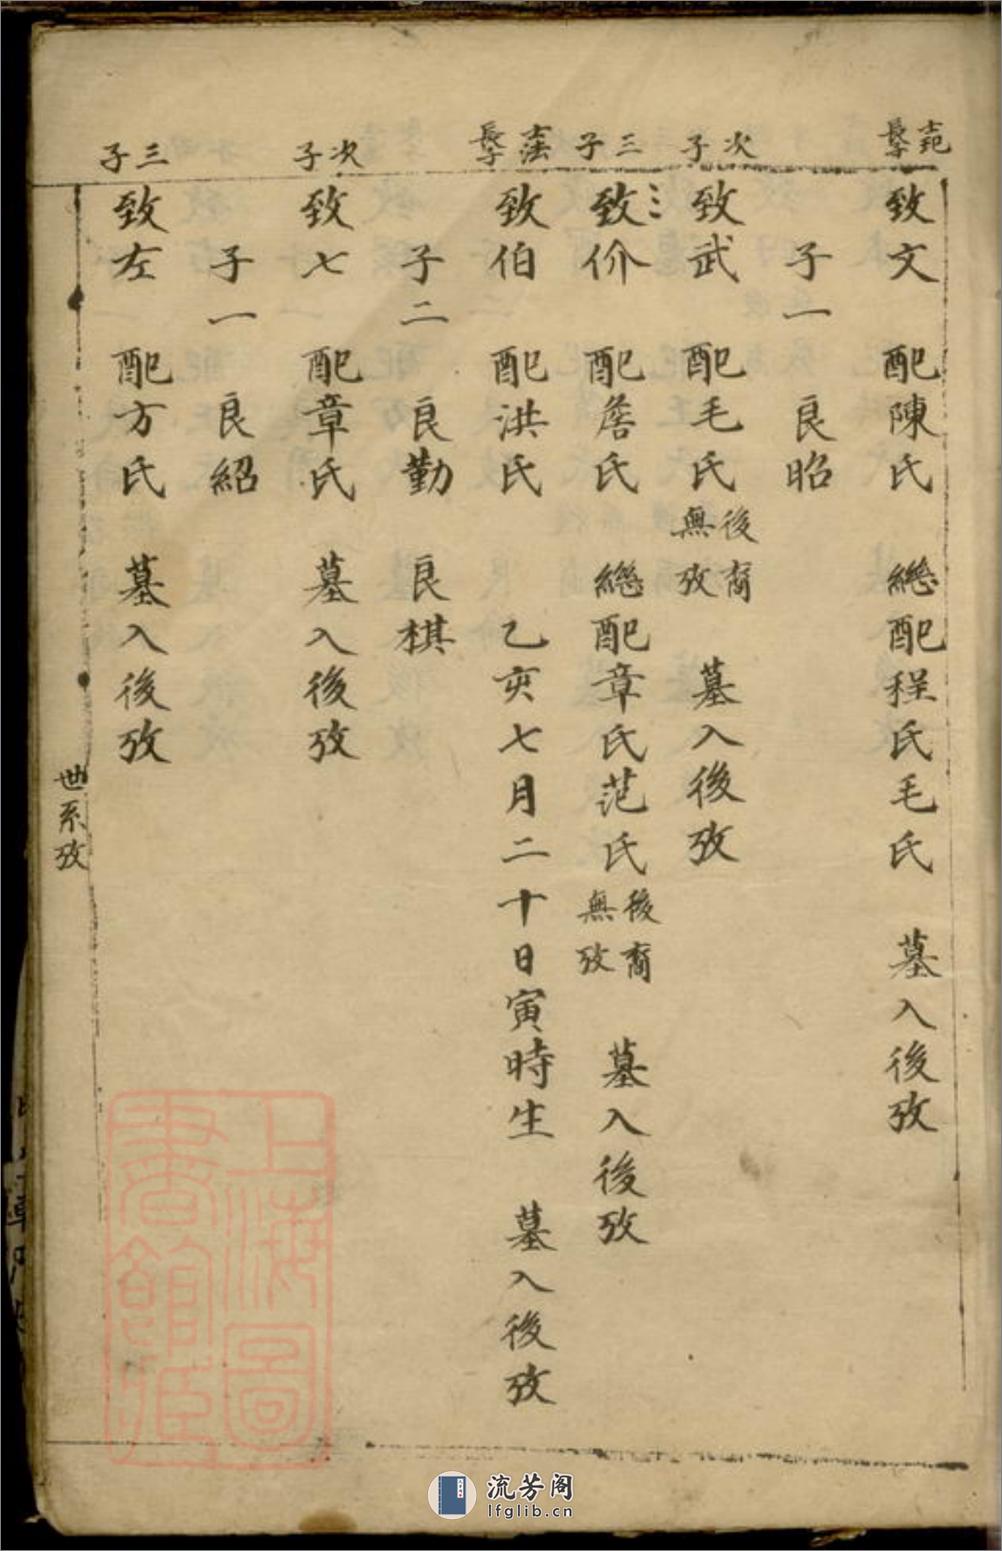 士范長子
致文 配陳氏 継配程氏毛氏 墓入後攷
子一 良昭
次子
致武 配毛氏 後裔無攷 墓入後攷
三子
致价 配詹氏 継配章氏范氏 後裔無攷 墓入後攷
士法長子
致伯 配洪氏 乙亥七月二十日寅時生 墓入後攷
子二 良勤 良棋
次子
致七 配章氏 墓入後攷
子一 良紹
三子
致左 配方氏 墓入後攷
世系攷
上海圖書館藏
流芳阁
lfglib.cn